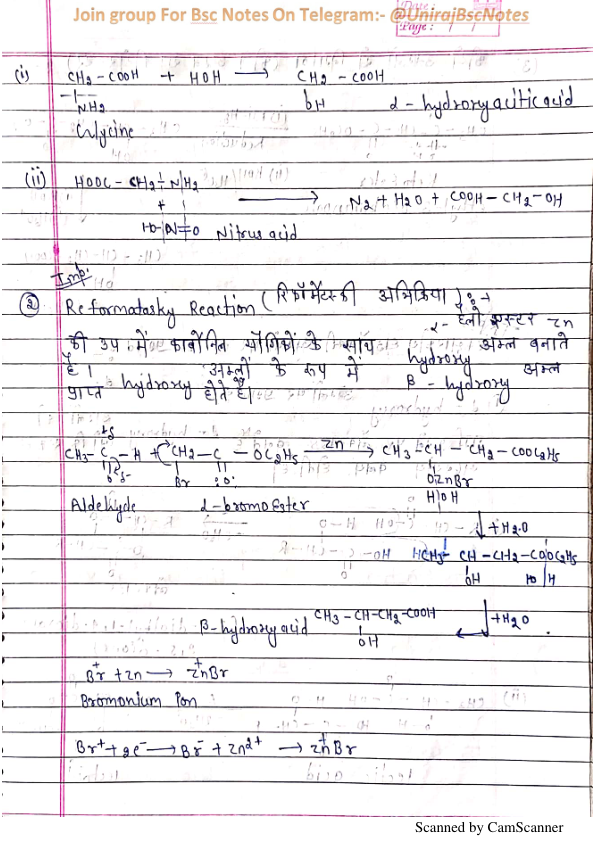 Join group For Bsc Notes On Telegram:- @UnirajBscNotes
Page: / /
(i) CH2-COOH + HOH → CH2-COOH
NH2 OH α- hydroxy acitic acid
Glycine
(ii) HOOC-CH2-N/H2
+ → N2 + H2O + COOH-CH2-OH
HO-N=O Nitrus acid
Imp.
(2) Reformatasky Reaction (रिफॉर्मेटस्की अभिक्रिया) :→
α- हैलो एस्टर Zn
की उप में कार्बोनिल यौगिकों के साथ hydroxy अम्ल बनाते
है। अम्लों के रूप में β-hydroxy अम्ल
प्राप्त hydroxy होते है।
δ+
CH3-C-H + CH2-C-OC2H5 Zn→ CH3-CH-CH2-COOC2H5
Oδ- Br :O: OZnBr
H|OH
Aldehyde α-bromo Ester
↓+H2O
CH3-CH-CH2-COOC2H5
OH HO|H
β-hydroxy acid CH3-CH-CH2-COOH ↓+H2O
OH
Br+ + Zn → Z+nBr
Bromonium Ion:
Br+ + 2e- → Br- + Zn2+ → Z+nBr
Scanned by CamScanner